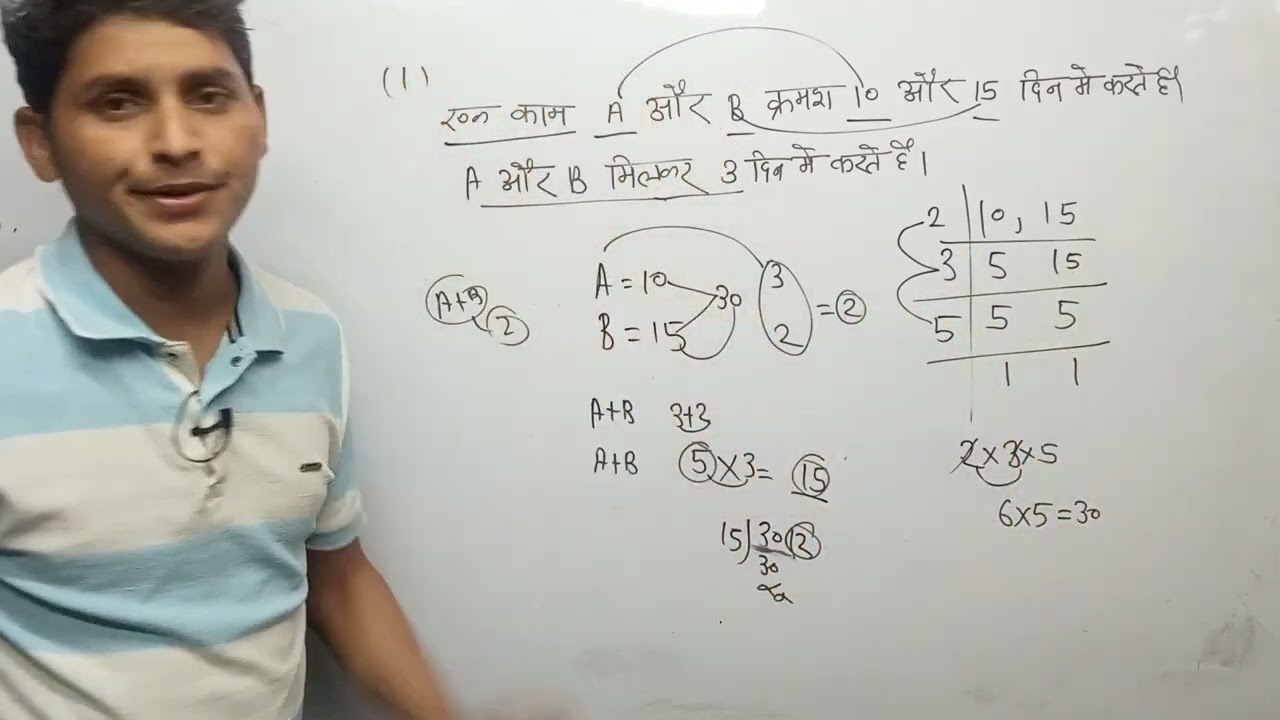 (1)
र०न काम A और B क्रमश 10 और 15 दिन मे करते है।
A और B मिलकर 3 दिन मे करते है।
A+B
2
A = 10
B = 15
30
3
2
= 2
A+B 3+2
A+B 5×3= 15
15)30(2
30
2 | 10, 15
3 | 5 15
5 | 5 5
1 1
2×3×5
6×5=30